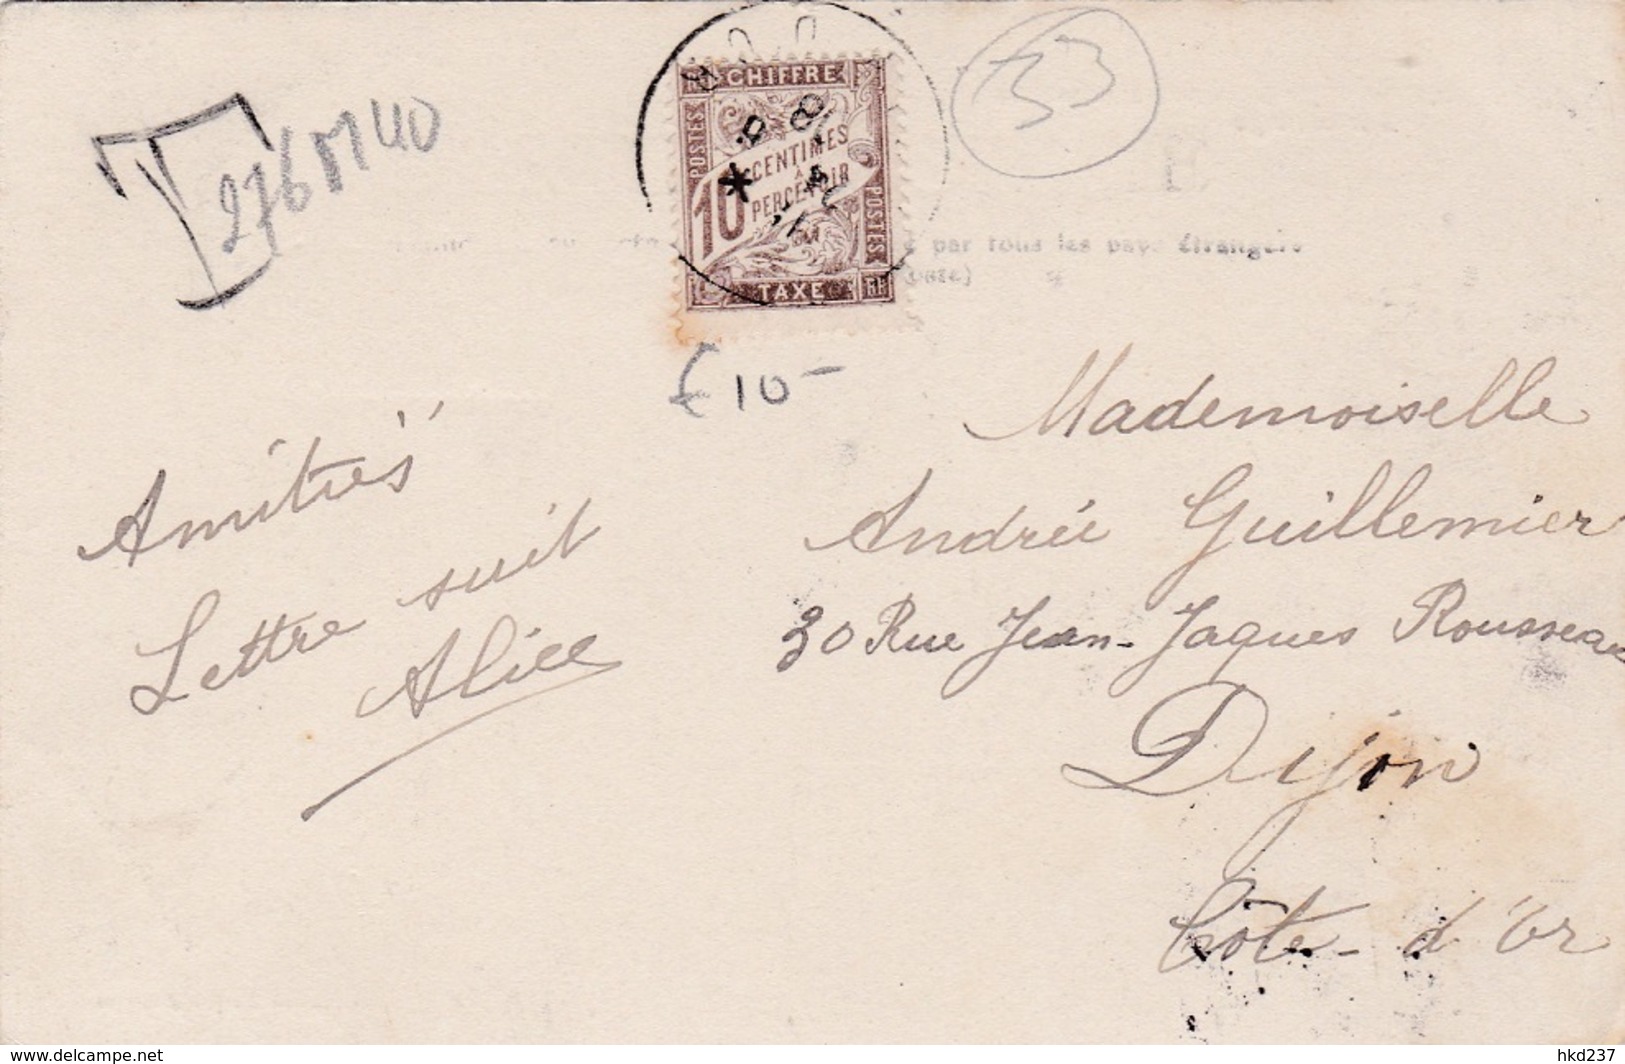 T
276M40
33
CHIFFRE
POSTES
10
CENTIMES
À
PERCEVOIR
POSTES
TAXE
RF
par tous les pays étrangers
€10-
Amitiés
Lettre suit
Alice
Mademoiselle
Andrée Guillemier
30 Rue Jean-Jaques Rousseau
Dijon
Côte-d'Or
www.delcampe.net
hkd237